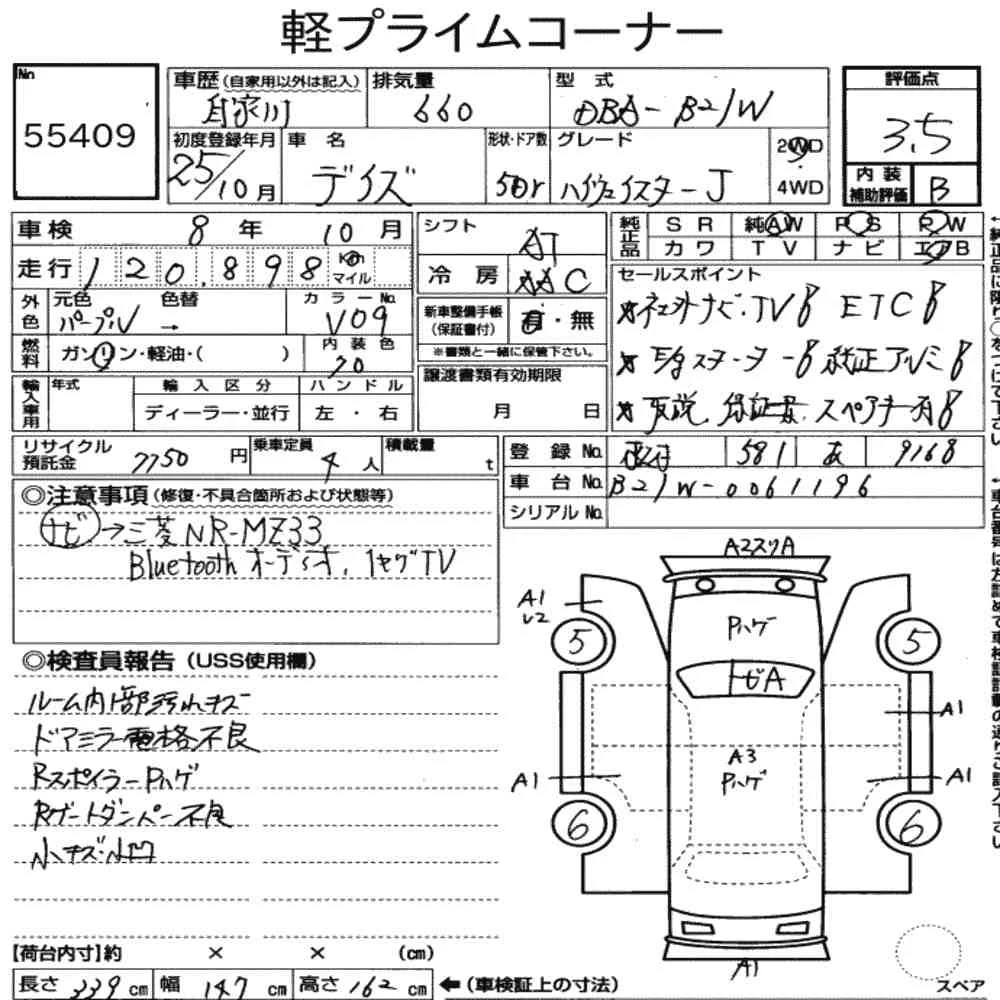 軽プライムコーナー
No
55409
車歴 (自家用以外は記入)
自家用
排気量
660
型 式
DBA-B21W
評価点
3.5
内装補助評価
B
初度登録年月
25/10月
車 名
デイズ
形状・ドア数
5Dr
グレード
ハイウェイスターJ
2WD
4WD
車検 8年 10月
走行 120,898 Km マイル
外色
元色 パープル
色替 →
カラーNo. V09
燃料 ガソリン・軽油・( )
内装色 70
輸入車用
年式
輸入区分
ディーラー・並行
ハンドル
左・右
シフト AT
冷房 AAC
新車整備手帳(保証書付) 有・無
※書類と一緒に保管下さい。
譲渡書類有効期限
月 日
純正品
SR 純AW PS PW
カワ TV ナビ エアB
セールスポイント
★社外ナビ・TV ETC
スターター 純正アルミ
★取説. スペアキー有
リサイクル預託金 7750円
乗車定員 4人
積載量 t
登録No. 581 あ 9168
車台No. B21W-0061196
シリアルNo.
◎注意事項 (修復・不具合箇所および状態等)
ナビ→三菱 NR-MZ33
Bluetoothオーディオ, 1セグTV
◎検査員報告 (USS使用欄)
ルーム内上部汚れキズ
ドアミラー電格不良
RスポイラーPハゲ
Rゲートダンパー不良
小キズ・小凹
A2スリA
A1
U2
5
5
Pハゲ
トビA
A1
A3
Pハゲ
A1
A1
6
6
A1
スペア
【荷台内寸】約 × × (cm)
長さ 339 cm 幅 147 cm 高さ 162 cm
←(車検証上の寸法)
←純正品に限り○をつけて下さい
←車台番号は左詰めで車検証記載の通りご記入下さい